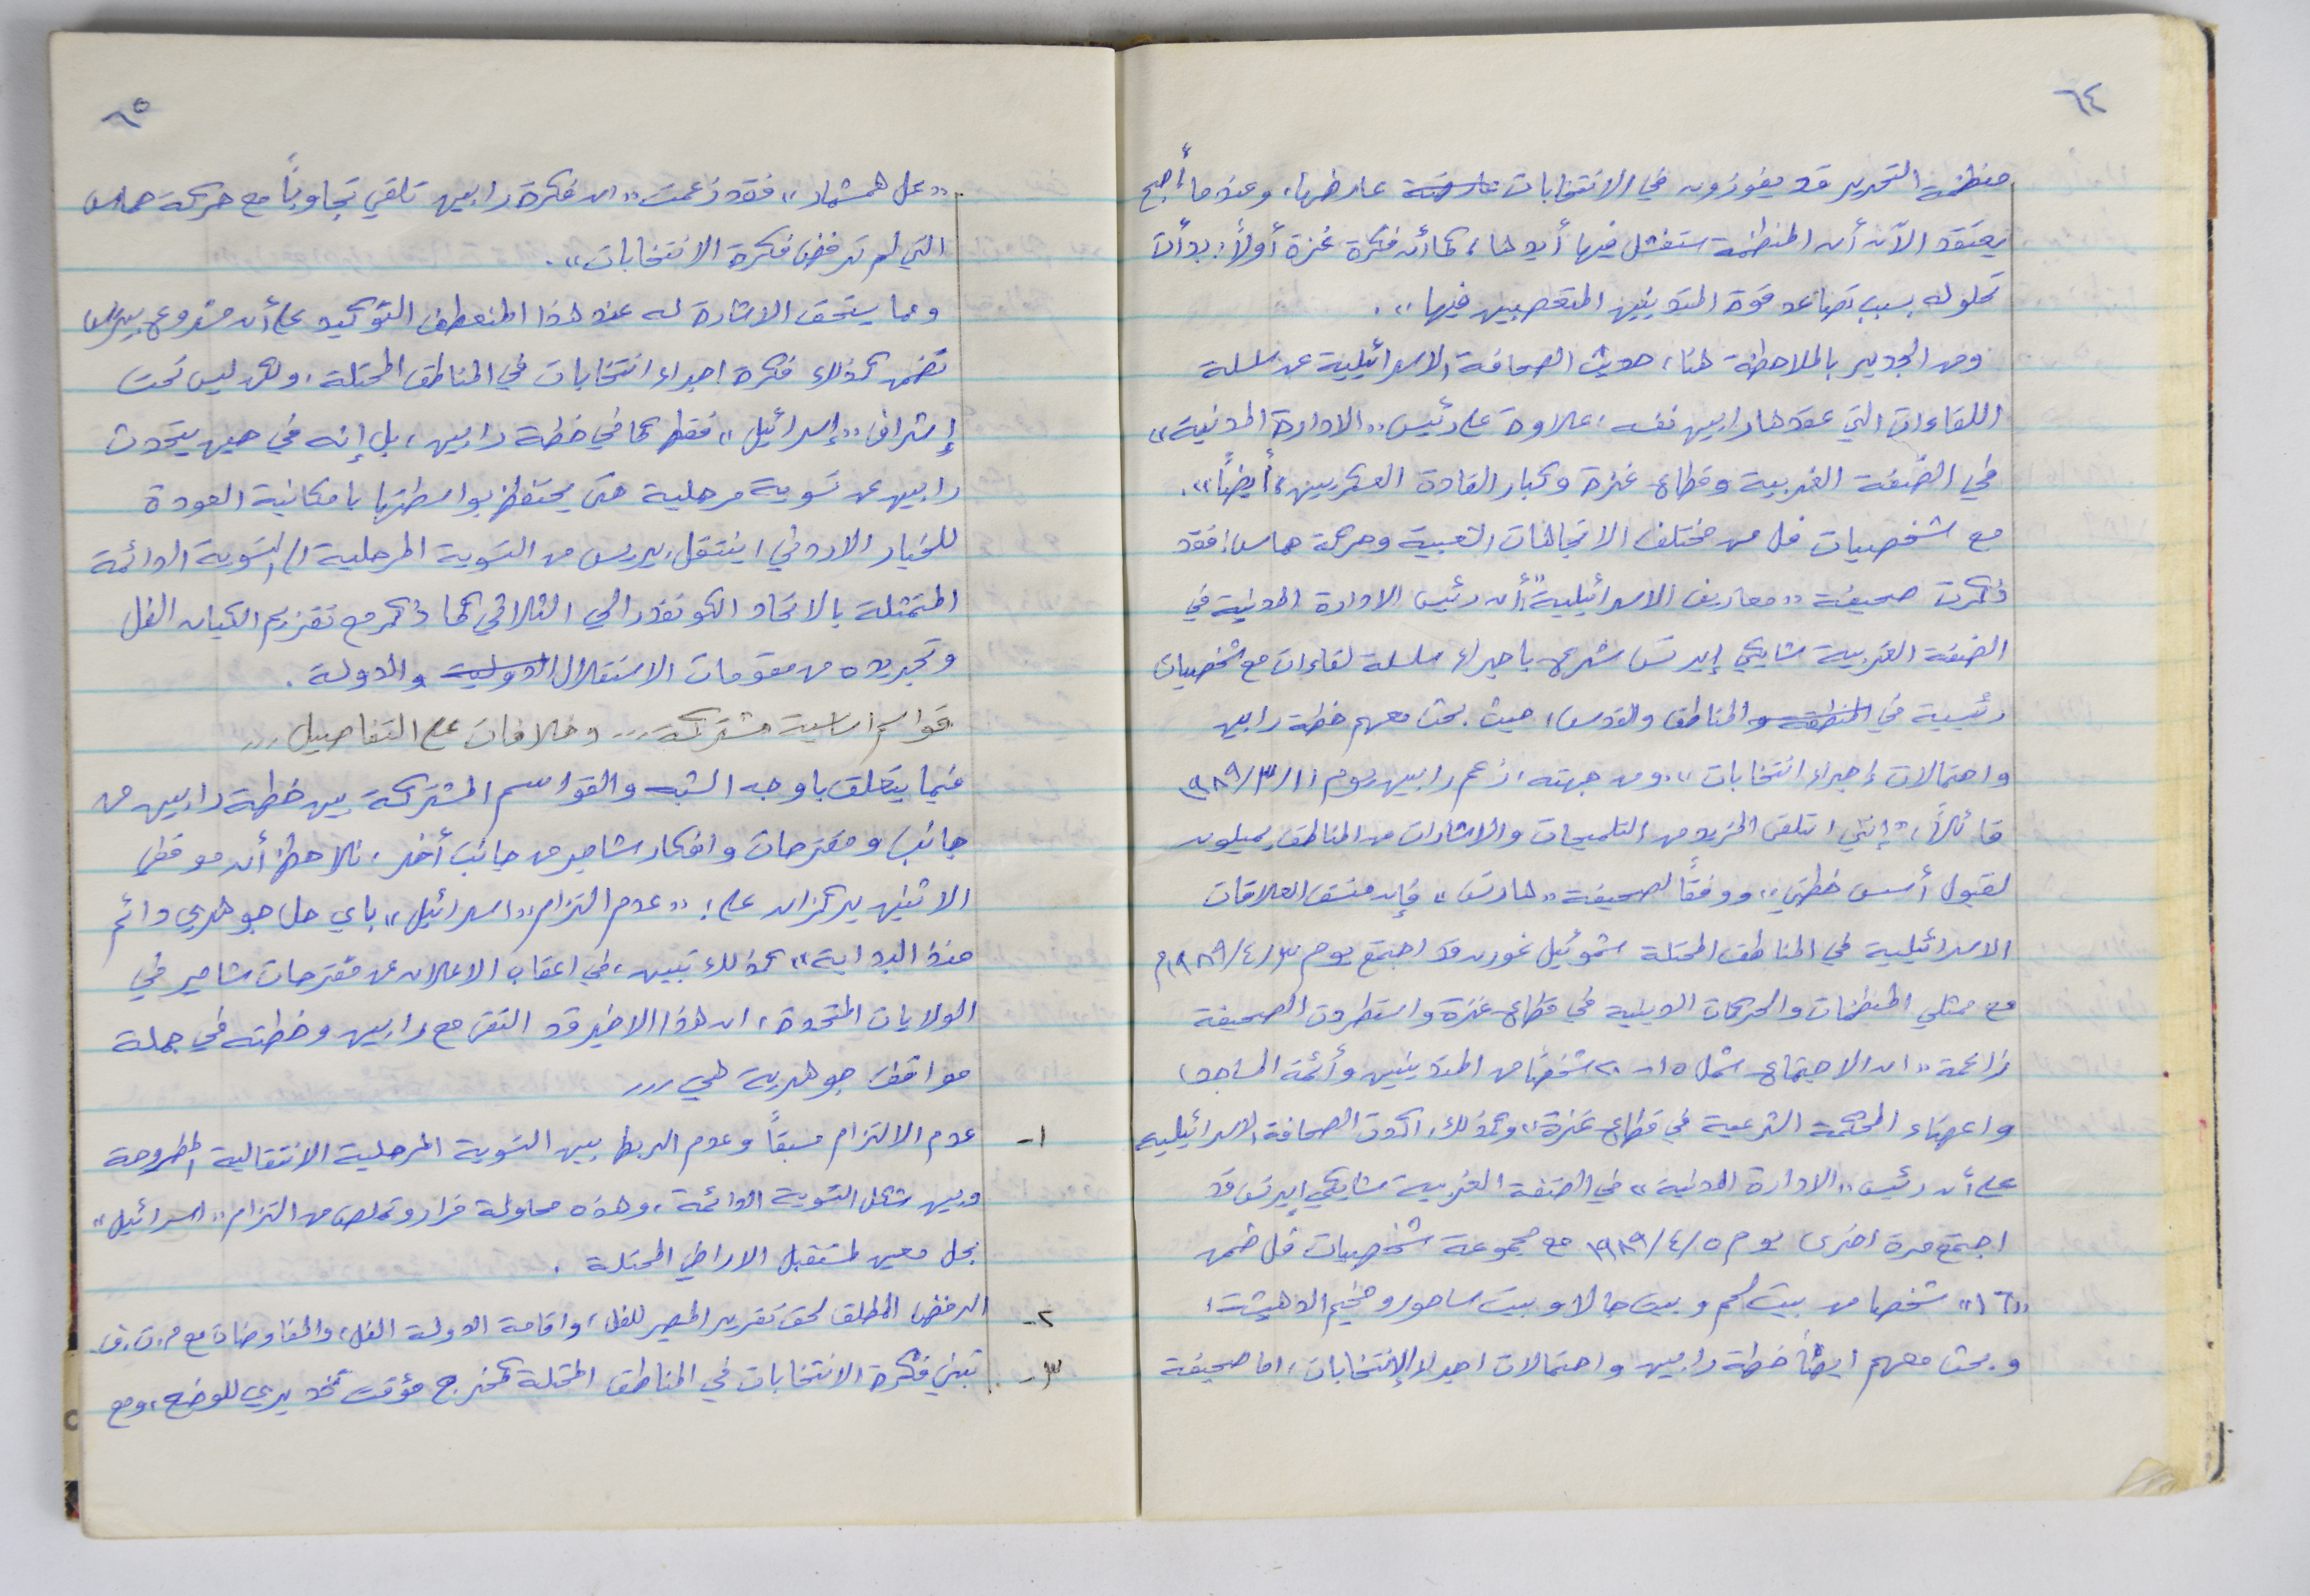 ٦٤
منظمة التحرير قد يفوزون في الانتخابات عارضها، وعندما أصبح
يعتقد الآن أن المنظمة ستفشل فيها أيدها، كما أن فكرة غزة أولاً، بدأت
تحلو له بسبب تصاعد قوة المتدينين المتعصبين فيها".
ومن الجدير بالملاحظة هنا، حديث الصحافة الاسرائيلية عن سلسلة
اللقاءات التي عقدها رابين نفسه، علاوة على رئيس "الادارة المدنية"
في الضفة الغربية وقطاع غزة وكبار القادة العسكريين، أيضاً".
مع شخصيات فل من مختلف الاتجاهات الشعبية وحركة حماس، فقد
ذكرت صحيفة "معاريف الاسرائيلية" أن رئيس الادارة المدنية في
الضفة الغربية شايكي إيرتس شرع باجراء سلسلة لقاءات مع شخصيات
رئيسية في المنطقة والمناطق والقدس، حيث بحث معهم خطة رابين
واحتمالات إجراء انتخابات"، ومن جهته، زعم رابين يوم ١١/٣/١٩٨٩
قائلاً، "إنني اتلقى المزيد من التلميحات والاشارات من المناطق يميلون
لقبول أسس خطتي"، ووفقاً لصحيفة "هارتس" فإن منسق العلاقات
الاسرائيلية في المناطق المحتلة شموئيل غورن قد اجتمع يوم ٣/٤/١٩٨٩م
مع ممثلي المنظمات والحركات الدينية في قطاع غزة واستطردت الصحيفة
زاعمة "ان الاجتماع شمل ١٥-٢٠ شخصاً من المتدينين وأئمة المساجد،
واعضاء المحكمة الشرعية في قطاع غزة"، وكذلك، اكدت الصحافة الاسرائيلية
على أن رئيس "الادارة المدنية" في الضفة الغربية شايكي إيرتس قد
اجتمع مرة اخرى يوم ٥/٤/١٩٨٩ مع مجموعة شخصيات فل ضمن
"١٦" شخصاً من بيت لحم وبيت جالا وبيت ساحور ومخيم الدهيشة،
وبحث معهم ايضاً خطة رابين واحتمالات اجراء الانتخابات، اما صحيفة
٦٥
"عل همشمار" فقد زعمت "ان فكرة رابين تلقي تجاوباً مع حركة حماس
التي لم ترفض فكرة الانتخابات".
ومما يستحق الاشارة له عند هذا المنعطف التوكيد على أن مشروع بيرس
تضمن كذلك فكرة اجراء انتخابات في المناطق المحتلة، ولكن ليس تحت
إشراف "إسرائيل" فقط كما في خطة رابين، بل إنه في حين يتحدث
رابين عن تسوية مرحلية حتى يحتفظ بواسطتها بامكانية العودة
للخيار الاردني، ينتقل بيرس من التسوية المرحلية الى التسوية الدائمة
المتمثلة بالاتحاد الكونفدرالي الثلاثي كما ذكر مع تقزيم الكيان الفل
وتجريده من مقومات الاستقلال الدولية والدولة.
قواسم اساسية مشتركة... وخلافات على التفاصيل...
فيما يتعلق باوجه الشبه والقواسم المشتركة بين خطة رابين من
جانب ومقترحات وافكار شامير من جانب أخر، نلاحظ أن موقفي
الاثنين يركزان على: "عدم التزام "اسرائيل" باي حل جوهري دائم
منذ البداية"، كذلك تبين، في اعقاب الاعلان عن مقترحات شامير في
الولايات المتحدة، ان هذا الاخير قد اتفق مع رابين وخطته في جملة
مواقف جوهرية هي...
١- عدم الالتزام مسبقاً وعدم الربط بين التسوية المرحلية الانتقالية المطروحة
وبين شكل التسوية الدائمة، وهذه محاولة فرار وتملص من التزام "اسرائيل"
بحل معين لمستقبل الاراضي المحتلة.
٢- الرفض المطلق لحق تقرير المصير للفل، واقامة الدولة الفل، والمفاوضات مع م.ت.ف.
٣- تبني فكرة الانتخابات في المناطق المحتلة كمخرج مؤقت تخديري للوضع، ومع